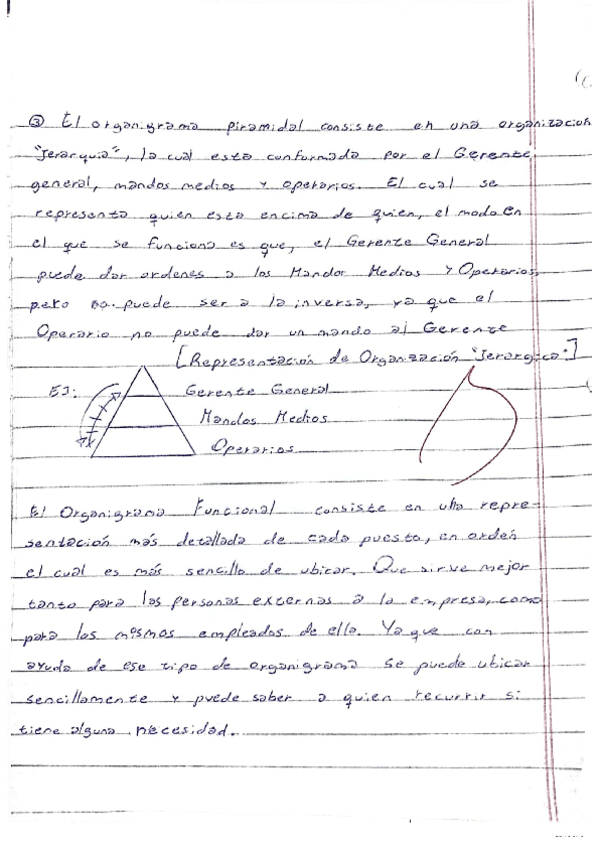 ③ El organigrama piramidal consiste en una organización
"Jerarquía", la cual esta conformada por el Gerente
general, mandos medios y operarios. El cual se
representa quien esta encima de quien, el modo en
el que se funciona es que, el Gerente General
puede dar ordenes a los Mandor Medios y Operarios,
pero no puede ser a la inversa, ya que el
Operario no puede dar un mando al Gerente
[Representación de Organización "Jerargica"]
EJ: Gerente General
Mandos Medios
Operarios
El Organigrama Funcional consiste en una repre-
sentación más detallada de cada puesto, en orden
el cual es más sencillo de ubicar. Que sirve mejor
tanto para las personas externas a la empresa, como
para los mismos empleados de ella. Ya que con
ayuda de ese tipo de organigrama se puede ubicar
sencillamente y puede saber a quien recurrir si
tiene alguna necesidad.